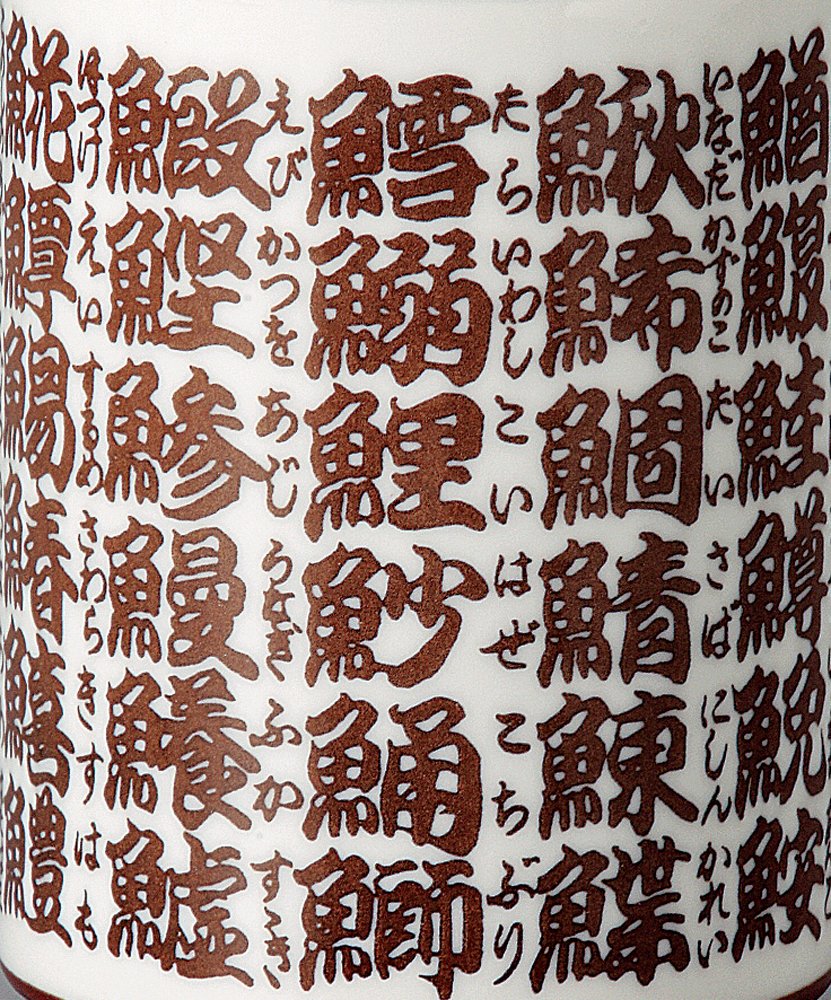 鰌 鰒 鮭 鱒 鮸 鮟
いなだ かずのこ たい さば にしん かれい
鰍 鯑 鯛 鯖 鰊 鰈
たら いわし こい はぜ こち ぶり
鱈 鰯 鯉 魦 鯒 鰤
えび かつを あじ うなぎ ふか すゝき
鰕 鰹 鯵 鰻 鱶 鱸
ほつけ えい するめ さわら きす はも
𩸽 鱏 鯣 鰆 鱚 鱧